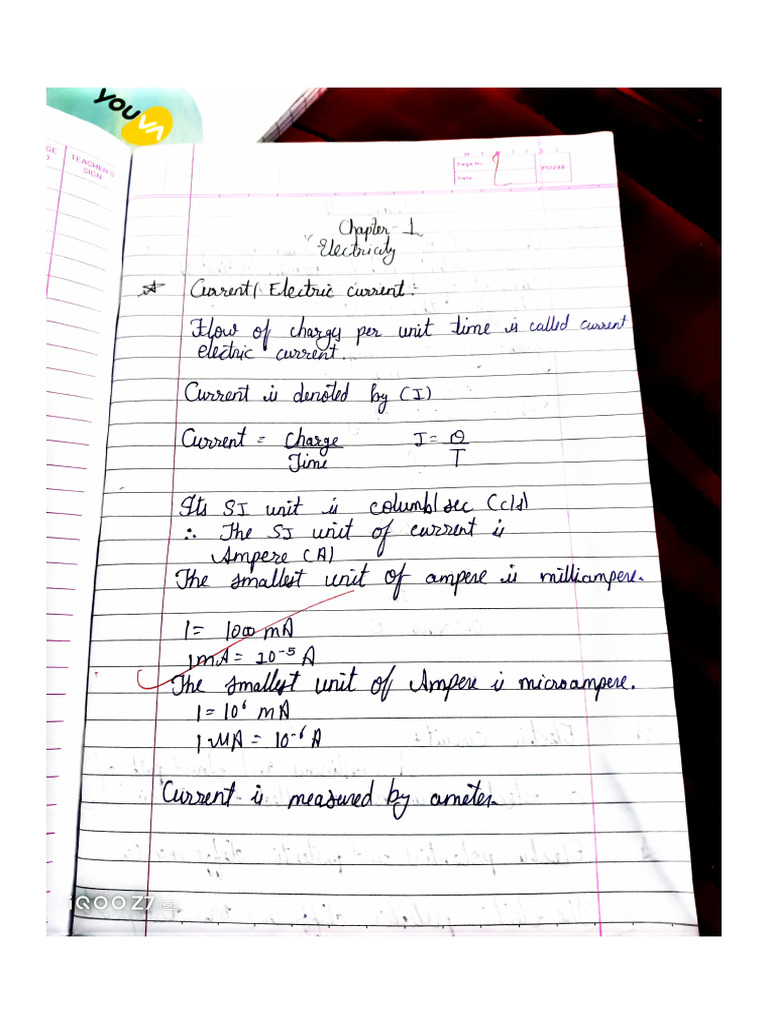 YOUVA
TEACHER'S
SIGN
Page No.
Date
YOUVA
Chapter - 1
Electricity
Current / Electric current :-
Flow of chargs per unit time is called current
electric current.
Current is denoted by (I)
Current = Charge I = Q
Time T
Its SI unit is columb/sec (c/s)
∴ The SI unit of current is
Ampere (A)
The smallest unit of ampere is milliampere.
1 = 1000 mA
1mA = 10⁻⁵ A
The smallest unit of Ampere is microampere.
1 = 10⁶ mA
1 MA = 10⁻⁶ A
Current is measured by ameter.
iQOO Z7 5G